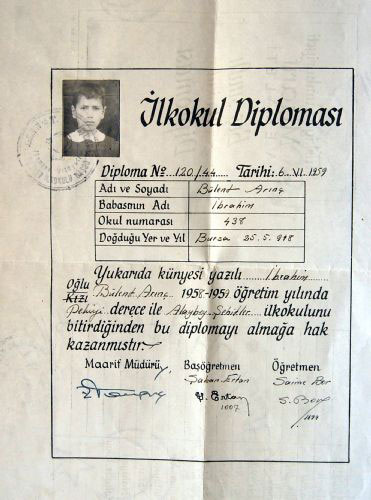 İlkokul Diploması
Diploma No 120/44 Tarihi: 6.VI.1959
Adı ve Soyadı Bülent Arınç
Babasının Adı İbrahim
Okul numarası 438
Doğduğu Yer ve Yıl Bursa 25.5.948
Yukarıda künyesi yazılı İbrahim
Oğlu
Kızı Bülent Arınç 1958-1959 öğretim yılında
Pekiyi derece ile Alaybey-Şehitler ilkokulunu
bitirdiğinden bu diplomayı almağa hak
kazanmıştır.
Maarif Müdürü, Başöğretmen Öğretmen
Şaban Ertan Saime
Y. Ertan
1007